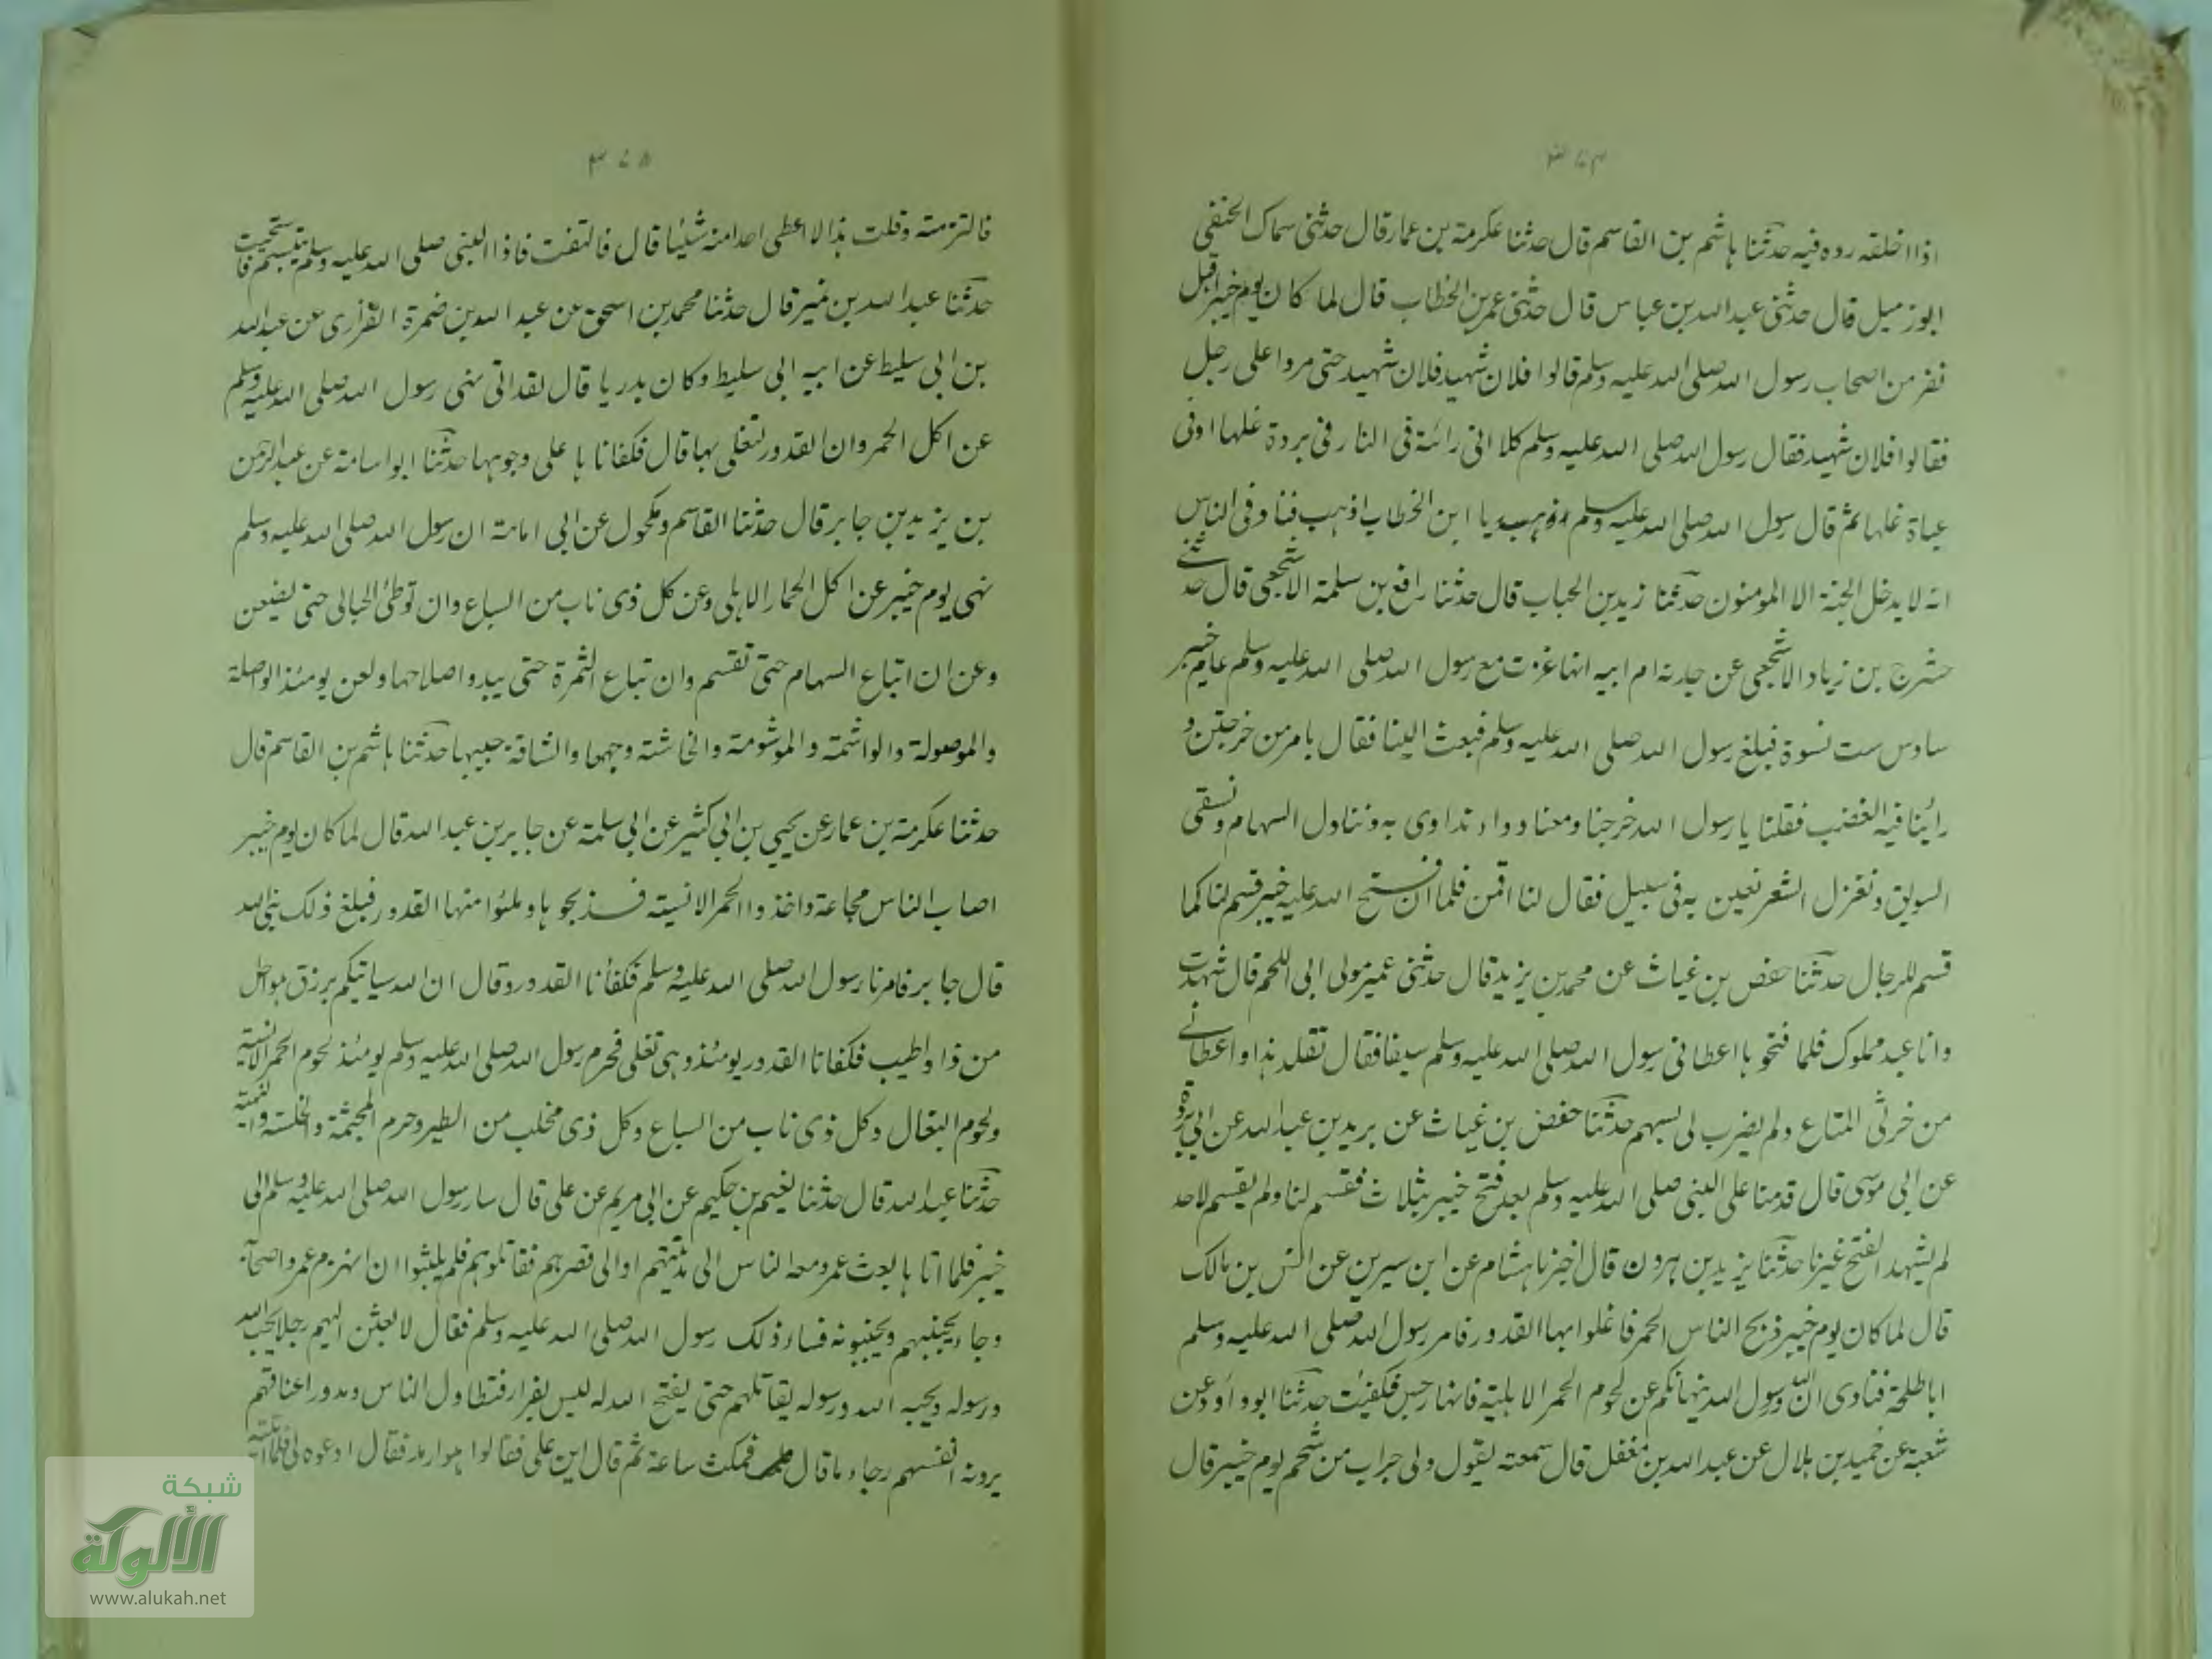 ٣٧٤
اذا اخلقه رده فيه حدثنا هاشم بن القاسم قال حدثنا عكرمة بن عمار قال حدثنى سماك الحنفى
ابو زميل قال حدثنى عبد الله بن عباس قال حدثنى عمر بن الخطاب قال لما كان يوم خيبر اقبل
نفر من اصحاب رسول الله صلى الله عليه وسلم قالوا فلان شهيد فلان شهيد حتى مروا على رجل
فقالوا فلان شهيد فقال رسول الله صلى الله عليه وسلم كلا انى رائته فى النار فى بردة غلها او فى
عباة غلها ثم قال رسول الله صلى الله عليه وسلم يا ابن الخطاب اذهب فناد فى الناس
انه لا يدخل الجنة الا المومنون حدثنا زيد بن الحباب قال حدثنا رافع بن سلمة الاشجعى قال حدثنى
حشرج بن زياد الاشجعى عن جدته ام ابيه انها غزت مع رسول الله صلى الله عليه وسلم عام خيبر
سادس ست نسوة فبلغ رسول الله صلى الله عليه وسلم فبعث الينا فقال بامر من خرجتن و
رائنا فيه الغضب فقلنا يا رسول الله خرجنا ومعنا دواء نداوى به ونناول السهام ونسقى
السويق ونغزل الشعر نعين به فى سبيل فقال لنا اقمن فلما ان فتح الله عليه خيبر قسم لنا كما
قسم للرجال حدثنا حفص بن غياث عن محمد بن يزيد قال حدثنى عمير مولى ابى اللحم قال شهدت
وانا عبد مملوك فلما فتحوها اعطانى رسول الله صلى الله عليه وسلم سيفا فقال تقلد هذا واعطانى
من خرثى المتاع ولم يضرب لى بسهم حدثنا حفص بن غياث عن بريد بن عبد الله عن ابى بردة
عن ابى موسى قال قدمنا على النبى صلى الله عليه وسلم بعد فتح خيبر بثلاث فقسم لنا ولم يقسم لاحد
لم يشهد الفتح غيرنا حدثنا يزيد بن هرون قال اخبرنا هشام عن ابن سيرين عن انس بن مالك
قال لما كان يوم خيبر ذبح الناس الحمر فاغلوا بها القدور فامر رسول الله صلى الله عليه وسلم
ابا طلحة فنادى ان الله ورسول الله ينهانكم عن لحوم الحمر الاهلية فانها رجس فكفئت حدثنا ابو داود عن
شعبة عن حميد بن هلال عن عبد الله بن مغفل قال سمعته يقول ولى جراب من شحم يوم خيبر قال
٣٧٥
فالتزمته وقلت هذا لا اعطى احدا منه شيئا قال فالتفت فاذا النبى صلى الله عليه وسلم يتبسم فاستحييت
حدثنا عبد الله بن نمير قال حدثنا محمد بن اسحق عن عبد الله بن ضمرة الفزارى عن عبد الله
بن ابى سليط عن ابيه ابى سليط وكان بدريا قال لقد اتى نهى رسول الله صلى الله عليه وسلم
عن اكل الحمر وان القدور لتغلى بها قال فكفاناها على وجوهها حدثنا ابو اسامة عن عبد الرحمن
بن يزيد بن جابر قال حدثنا القاسم ومكحول عن ابى امامة ان رسول الله صلى الله عليه وسلم
نهى يوم خيبر عن اكل الحمار الاهلى وعن كل ذى ناب من السباع وان توطئ الحبالى حتى يضعن
وعن ان اتباع السهام حتى تقسم وان تباع الثمرة حتى يبدو اصلاحها ولعن يومئذ الواصلة
والموصولة والواشمة والموشومة والخاشته وجهها والشاقة جيبها حدثنا هاشم بن القاسم قال
حدثنا عكرمة بن عمار عن يحيى بن ابى كثير عن ابى سلمة عن جابر بن عبد الله قال لما كان يوم خيبر
اصاب الناس مجاعة واخذوا الحمر الانسية فذبحوها وملئوا منها القدور فبلغ ذلك نبى الله
قال جابر فامرنا رسول الله صلى الله عليه وسلم فكفأنا القدور وقال ان الله سياتيكم برزق هو احل
من ذا واطيب فكفانا القدور يومئذ وهى تغلى فحرم رسول الله صلى الله عليه وسلم يومئذ لحوم الحمر الانسية
ولحوم البغال وكل ذى ناب من السباع وكل ذى مخلب من الطير وحرم المجثمة والخلسة والنهبة
حدثنا عبد الله قال حدثنا نعيم بن حكيم عن ابى مريم عن على قال سار رسول الله صلى الله عليه وسلم الى
خيبر فلما اتاها بعث عمر ومعه الناس الى مدينتهم او الى قصرهم فقاتلوهم فلم يلبثوا ان انهزم عمر واصحابه
وجاء يجبنهم ويجبنونه فساء ذلك رسول الله صلى الله عليه وسلم فقال لابعثن اليهم رجلا يحب الله
ورسوله ويحبه الله ورسوله يقاتلهم حتى يفتح الله له ليس بفرار فتطاول الناس ومدوا اعناقهم
يرونه انفسهم رجاء ما قال فمكث ساعة ثم قال اين على فقالوا هو ارمد فقال ادعوه لى فلما اتيته
شبكة
الألوكة
www.alukah.net